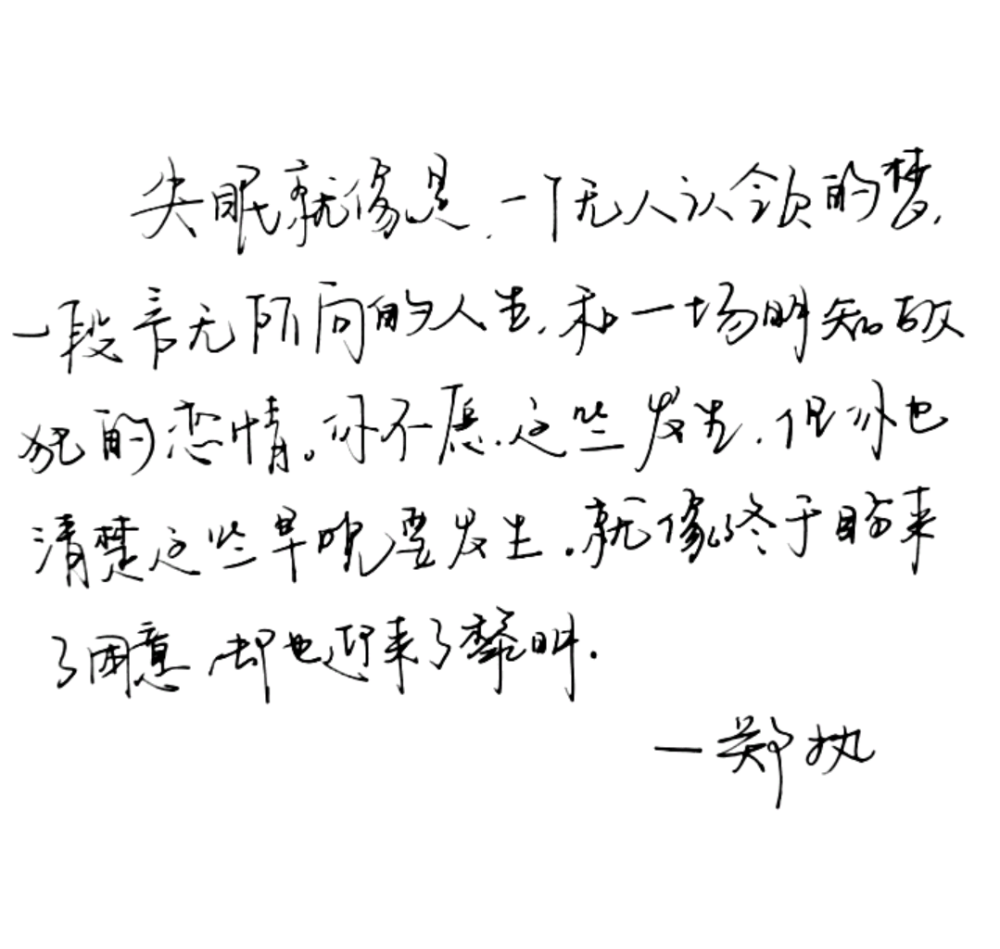 失眠就像是,一个无人认领的梦,
一段意无所向的人生,和一场明知故
犯的恋情。你不愿这些发生,但你也
清楚这些早晚要发生。就像终于盼来
了困意,却也迎来了犁明.
—郑执